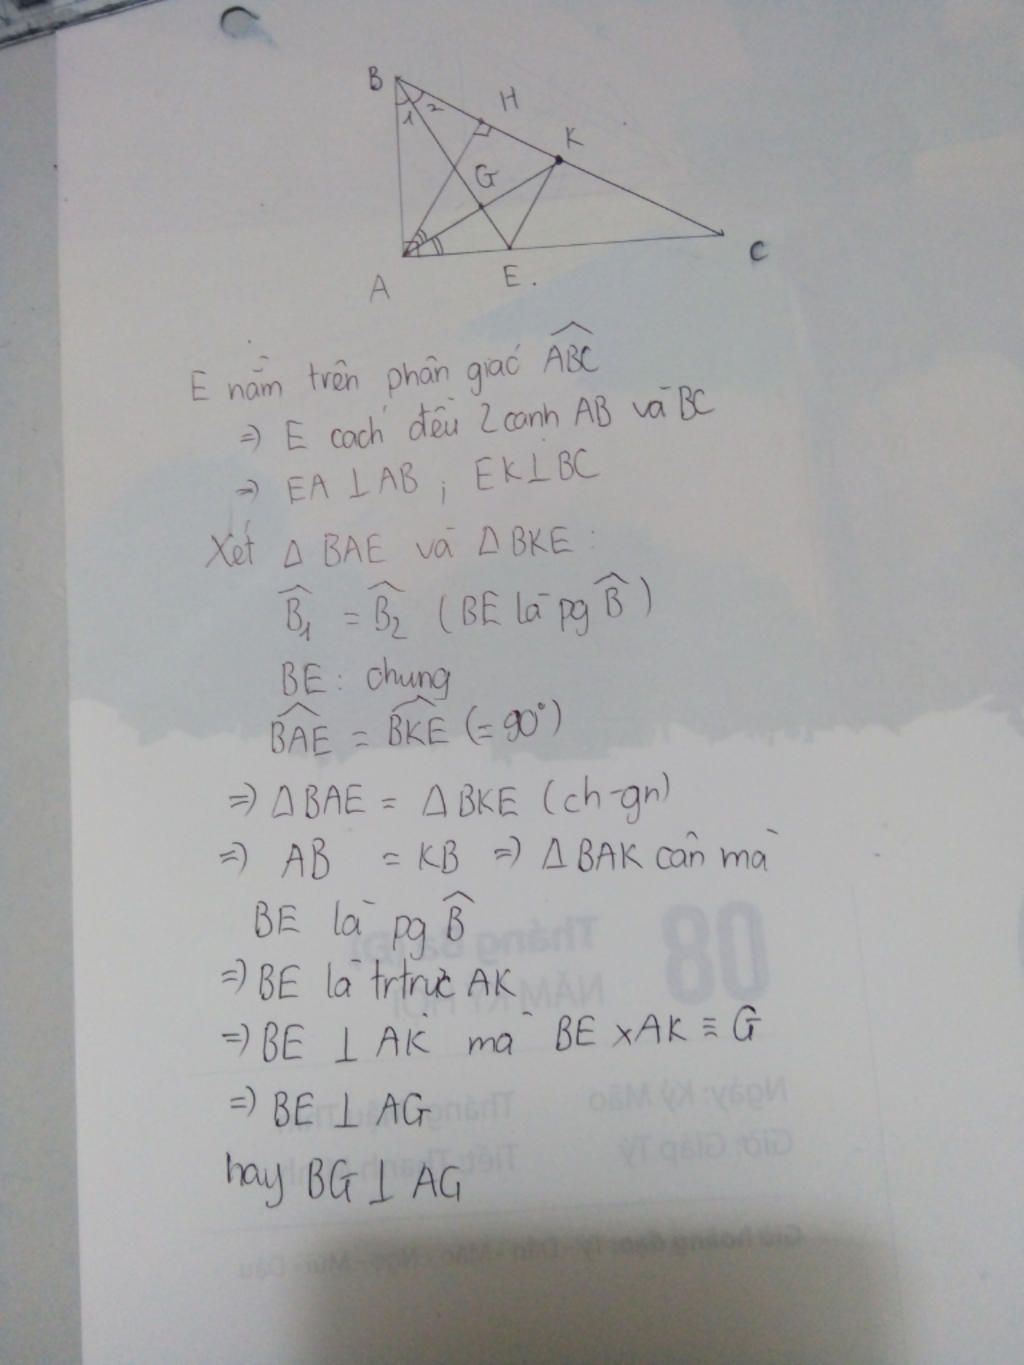 B
1
2
H
K
G
A
E.
C
E nằm trên phân giác ABC
=> E cách đều 2 cạnh AB và BC
=> EA ⊥ AB ; EK ⊥ BC
Xét Δ BAE và Δ BKE :
B̂₁ = B̂₂ (BE là pg B̂)
BE : chung
BAE = BKE (= 90°)
=> Δ BAE = Δ BKE (ch-gn)
=> AB = KB => Δ BAK cân mà
BE là pg B̂
=> BE là trtrực AK
=> BE ⊥ AK mà BE x AK ≡ G
=> BE ⊥ AG
hay BG ⊥ AG
08
Tháng Ba (Đ)
NĂM KỶ HỢI
Ngày: Kỷ Mão
Giờ: Giáp Tý
Giờ hoàng đạo: Tý - Dần - Mão - Ngọ - Mùi - Dậu